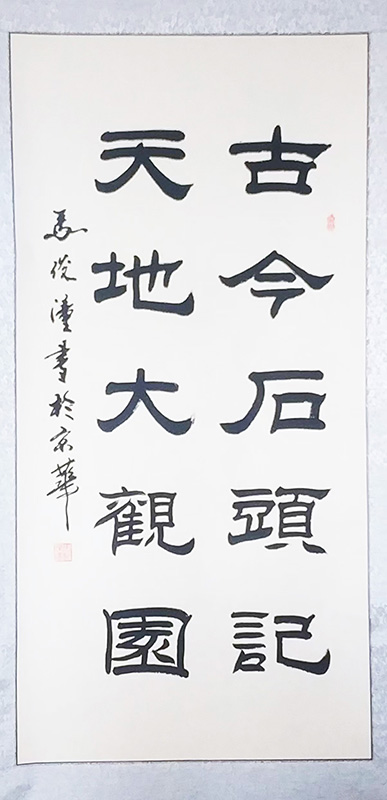 古今石頭記
天地大觀園
馬俊潼書於京華